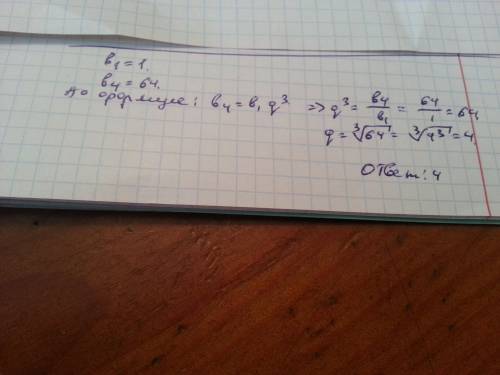 b₁ = 1.
b₄ = 64.
По формуле: b₄ = b₁ q³ => q³ = b₄/b₁ = 64/1 = 64
q = ∛64 = ∛4³ = 4
Ответ: 4